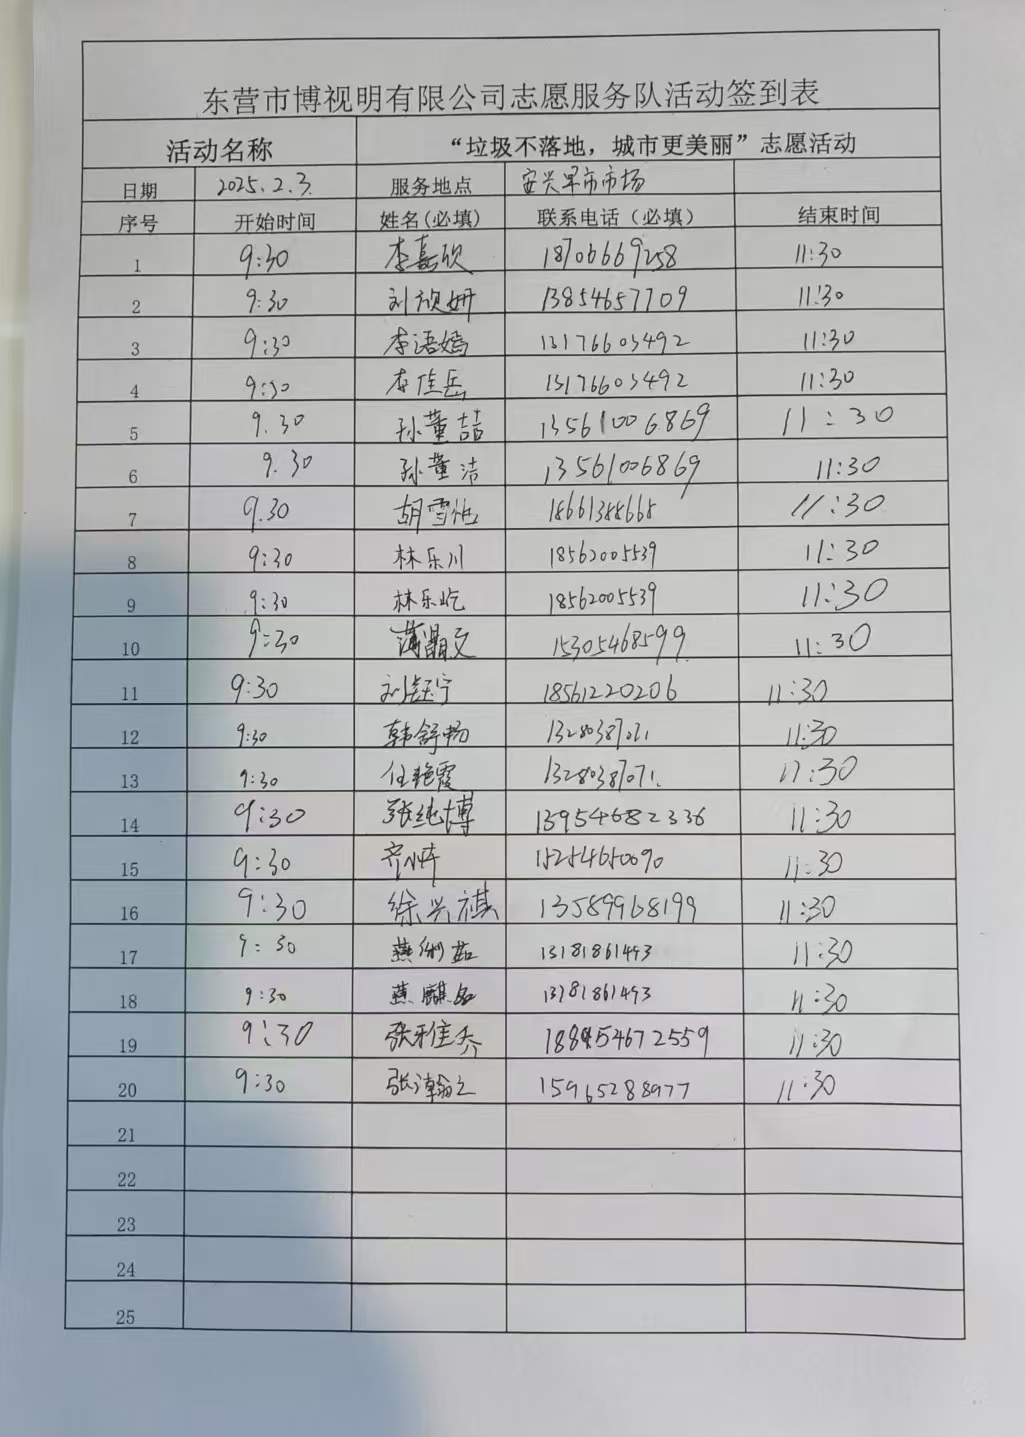 东营市博视明有限公司志愿服务队活动签到表
活动名称 “垃圾不落地，城市更美丽”志愿活动
日期 2025.2.3 服务地点 安兴早市市场
序号 开始时间 姓名(必填) 联系电话（必填） 结束时间
1 9:30 李嘉欣 18706669258 11:30
2 9:30 刘欣妍 13854657709 11:30
3 9:30 李语嫣 13176603492 11:30
4 9:30 李佳岳 13176603492 11:30
5 9.30 孙董喆 13561006869 11:30
6 9.30 孙董洁 13561006869 11:30
7 9.30 胡雪怡 18661388668 11:30
8 9:30 林乐川 18562005539 11:30
9 9:30 林乐屹 18562005539 11:30
10 9:30 15305468599 11:30
11 9:30 刘钰宁 18561220206 11:30
12 9:30 韩舒畅 11:30
13 9:30 任艳霞 13280387071 11:30
14 9:30 张纯博 13954682336 11:30
15 9:30 15254650090 11:30
16 9:30 徐兴祺 13589968199 11:30
17 9:30 13181861493 11:30
18 9:30 13181861493 11:30
19 9:30 张雅乔 11:30
20 9:30 张瀚之 15965288977 11:30
21
22
23
24
25